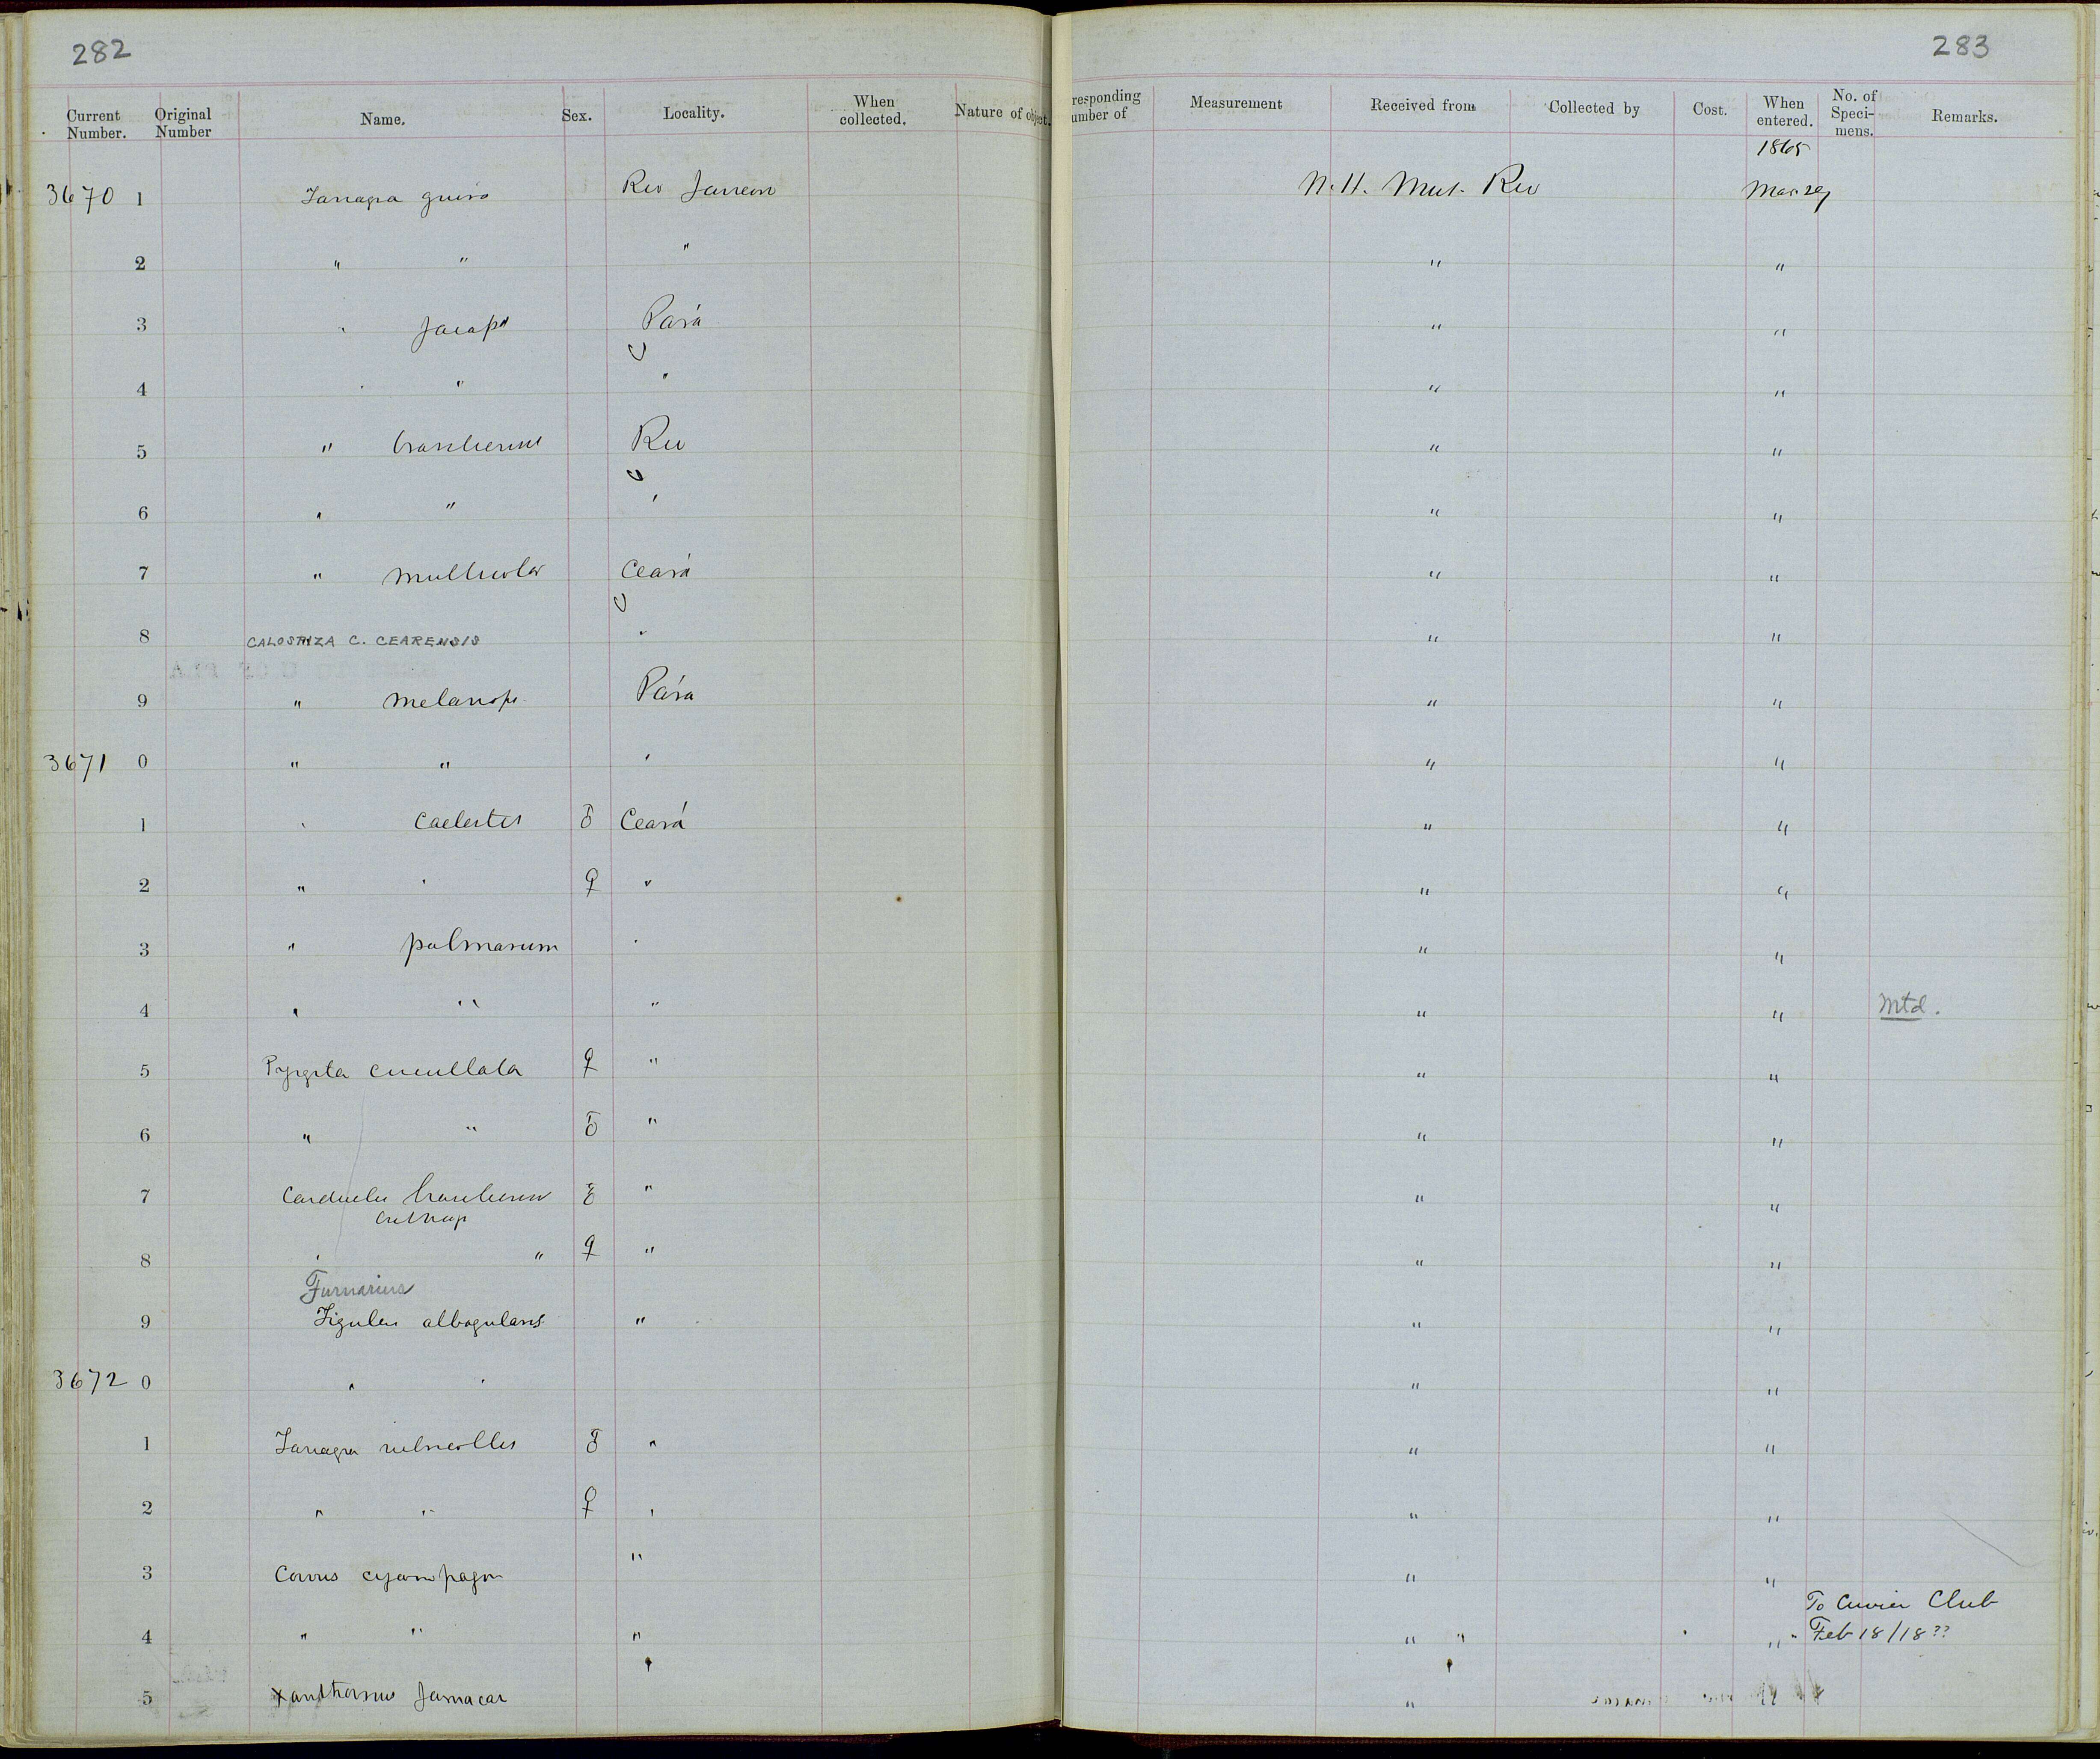 282
283
Current Number. Original Number Name. Sex. Locality. When collected. Nature of object.
responding umber of Measurement Received from Collected by Cost. When entered. No. of Speci-mens. Remarks.
1865
3670 1 Tanagra guira Rio Janeiro N. H. Mus. Rio Mar 29
2 " " " " "
3 " Jacapa Pará " "
4 " " " " "
5 " brasiliensis Rio " "
6 " " " " "
7 " multicolor Ceará " "
8 CALOSPIZA C. CEARENSIS " " "
9 " melanops Pára " "
3671 0 " " " " "
1 " Caelestis ♂ Ceará " "
2 " " ♀ " " "
3 " palmarum " " "
4 " " " " " Mtd.
5 Pyrgita cucullata ♀ " " "
6 " " ♂ " " "
7 Carduelis brasiliensis ♂ " " "
8 " " ♀ " " "
Furnarius
9 Figulus albogularis " " "
3672 0 " " " "
1 Tanagra rubricollis ♂ " " "
2 " " ♀ " " "
3 Corvus cyanopogon " " "
To Cuvier Club
4 " " " " " " " Feb 18/18??
5 Xanthornus Jamacai "